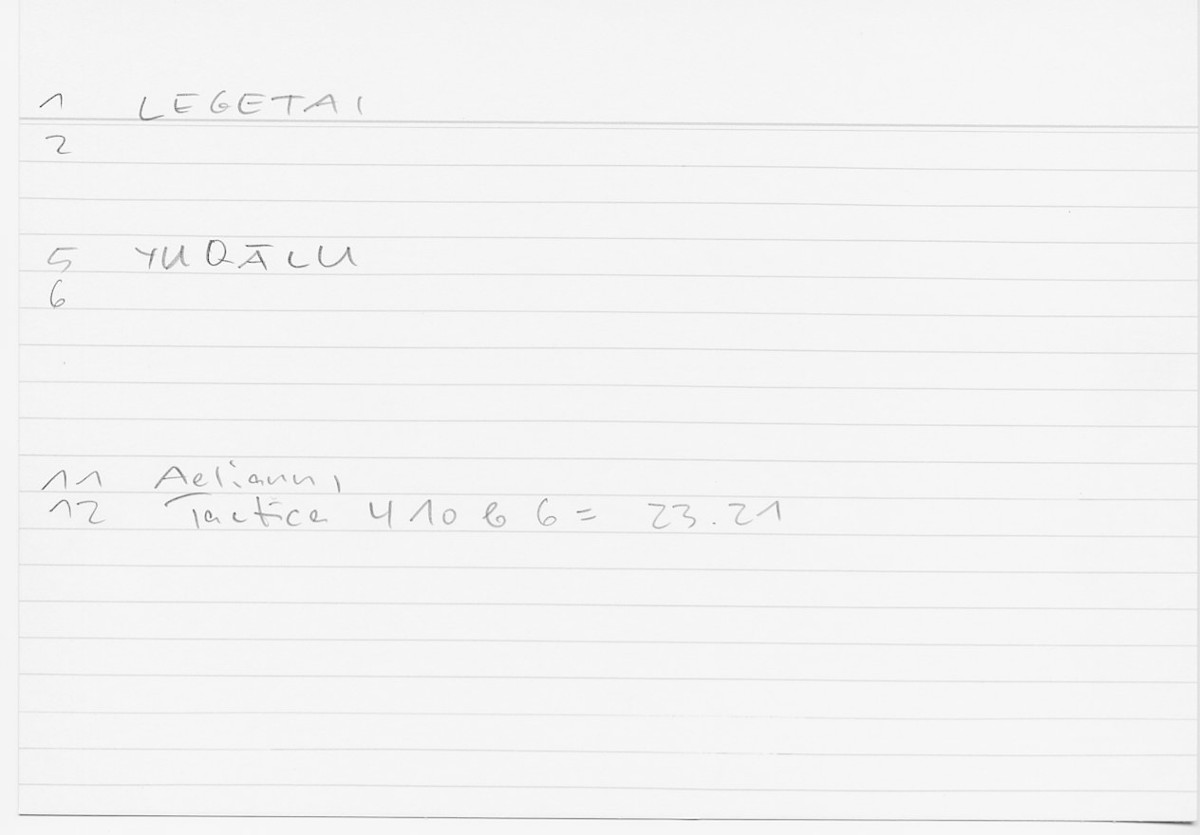 1 LEGETAI
2
5 YUQĀLU
6
11 Aelianus,
12 Tactica 410 b 6 = 23.21